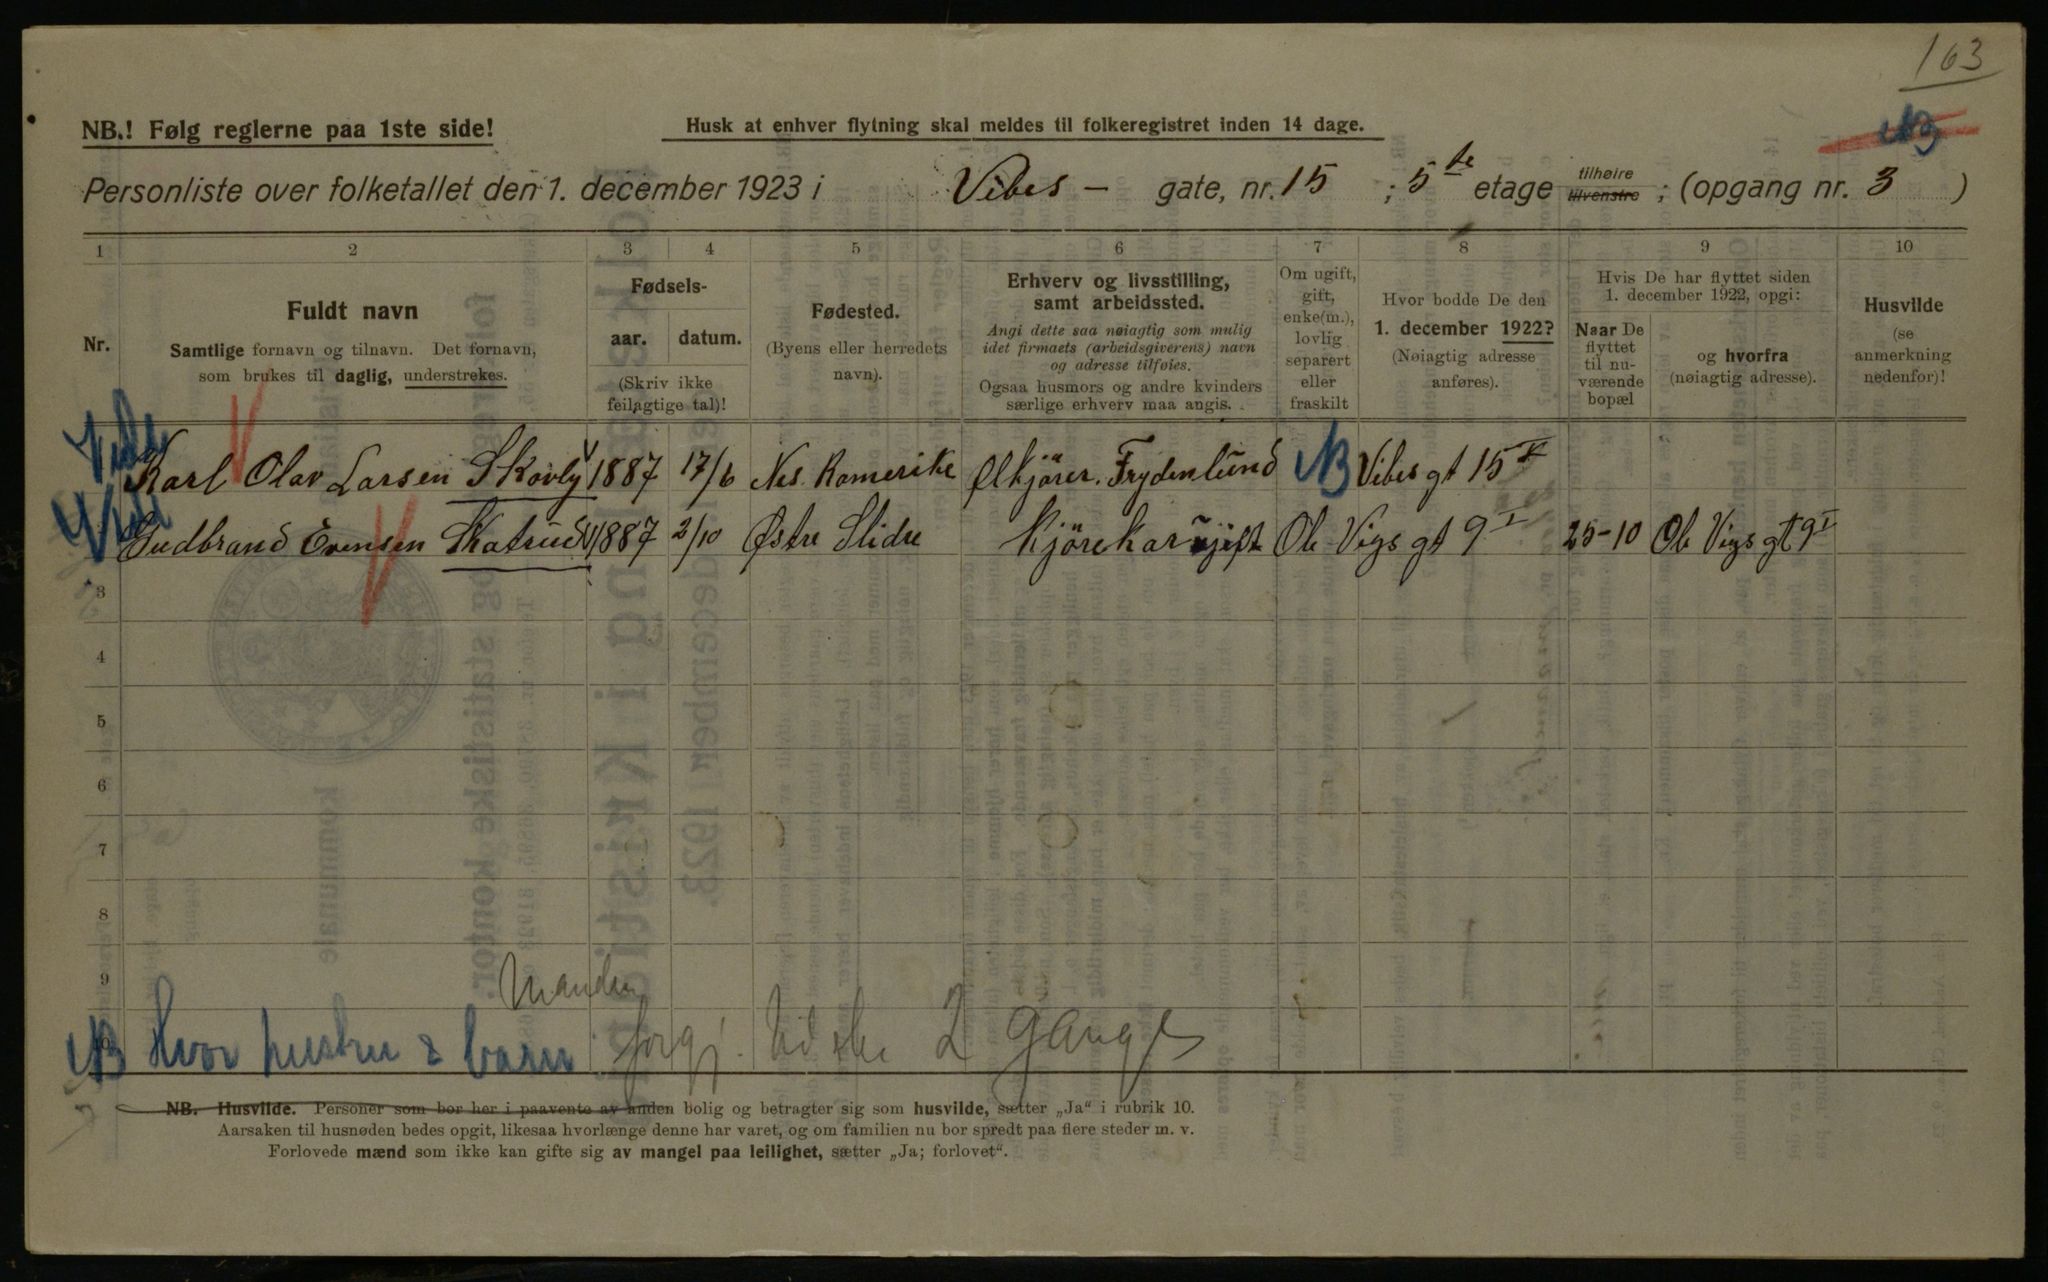 163
NB.! Følg reglerne paa 1ste side!
Husk at enhver flytning skal meldes til folkeregistret inden 14 dage.
NB
Personliste over folketallet den 1. december 1923 i Vibes - gate, nr. 15 ; 5te etage tilhøire tilvenstre ; (opgang nr. 3 )
1 2 3 4 5 6 7 8 9 10
Nr.
Fuldt navn
Samtlige fornavn og tilnavn. Det fornavn,
som brukes til daglig, understrekes.
Fødsels-
aar. datum.
(Skriv ikke
feilagtige tal)!
Fødested.
(Byens eller herredets
navn).
Erhverv og livsstilling,
samt arbeidssted.
Angi dette saa nøiagtig som mulig
idet firmaets (arbeidsgiverens) navn
og adresse tilføies.
Ogsaa husmors og andre kvinders
særlige erhverv maa angis.
Om ugift,
gift,
enke(m.),
lovlig
separert
eller
fraskilt
Hvor bodde De den
1. december 1922?
(Nøiagtig adresse
anføres).
Hvis De har flyttet siden
1. december 1922, opgi:
Naar De
flyttet
til nu-
værende
bopæl
og hvorfra
(nøiagtig adresse).
Husvilde
(se
anmerkning
nedenfor)!
Karl Olav Larsen Skovly 1887 17/6 Nes Romerike Ølkjører. Frydenlund NB Vibes gt 15 V
Gudbrand Evensen Skatrud 1887 2/10 Østre Slidre Kjørekar gift Ole Vigs gt 9 I 25-10 Ole Vigs gt 9 I
3
4
5
6
7
8
9
10
Manden
NB Hvor hustru & barn forgj. 2 gange
NB. Husvilde. Personer som bor her i paavente av anden bolig og betragter sig som husvilde, sætter „Ja" i rubrik 10.
Aarsaken til husnøden bedes opgit, likesaa hvorlænge denne har varet, og om familien nu bor spredt paa flere steder m. v.
Forlovede mænd som ikke kan gifte sig av mangel paa leilighet, sætter „Ja; forlovet".